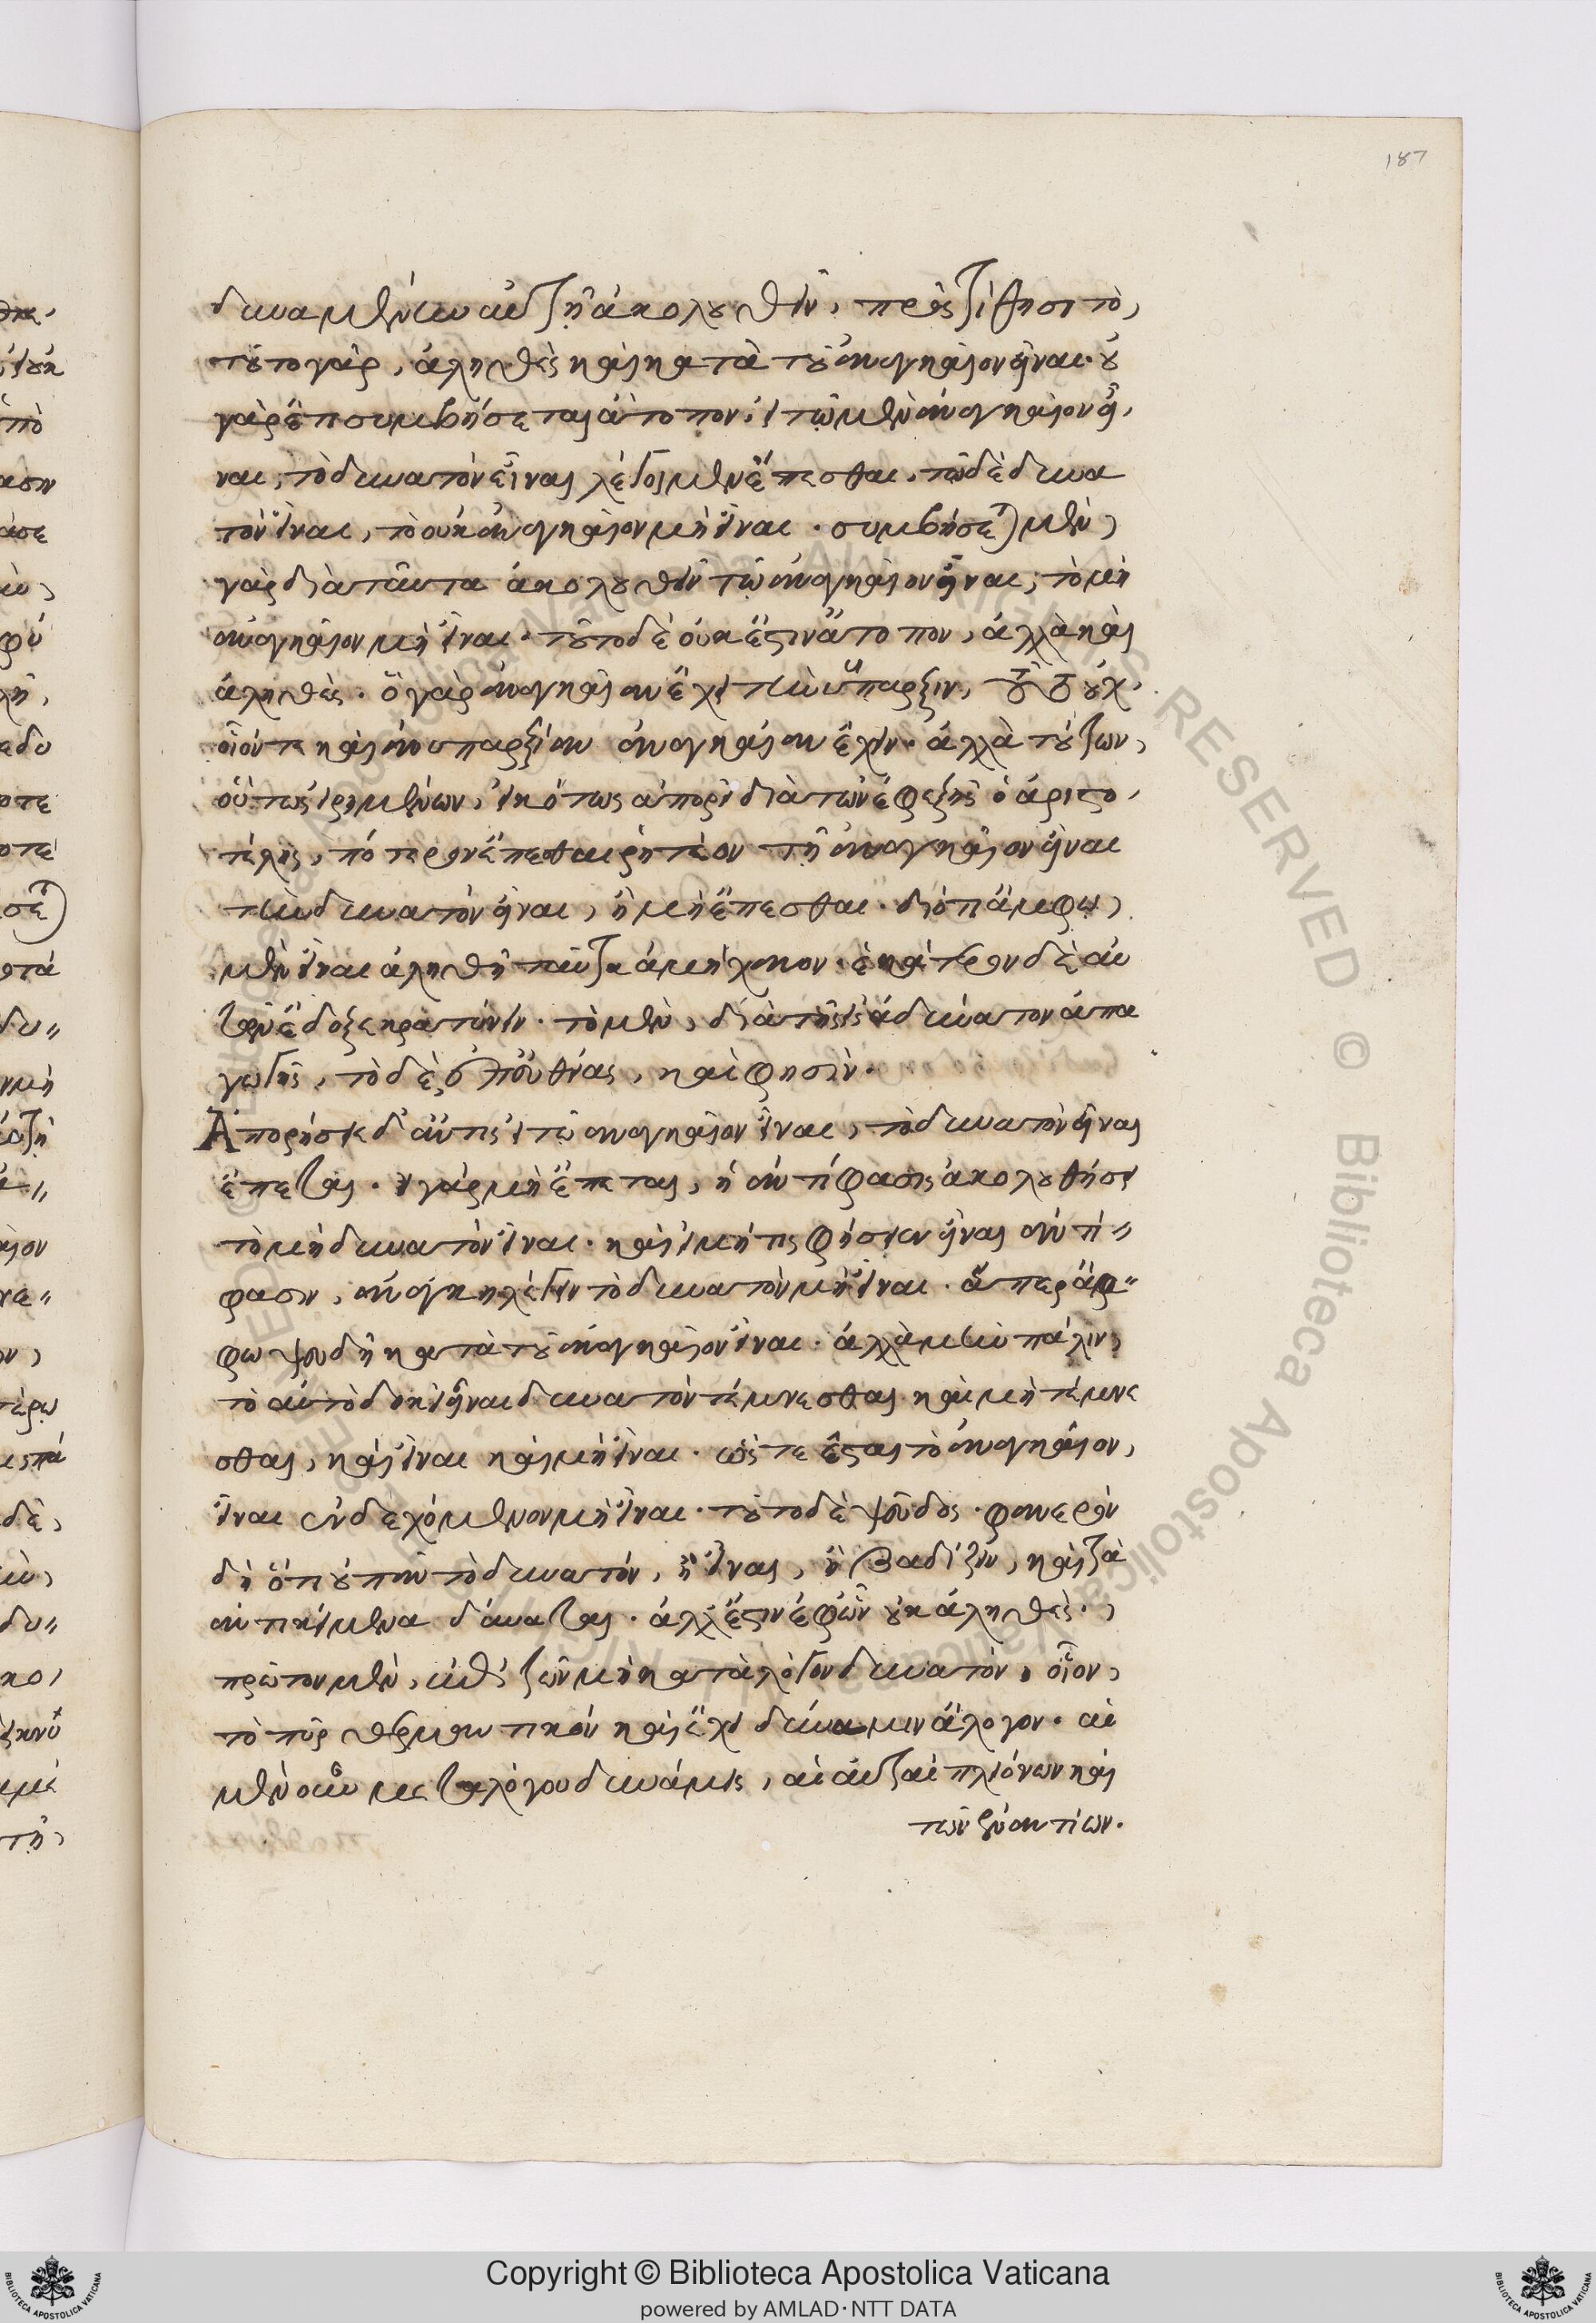 187
δυναμένην αὐτῇ ἀκολουθεῖν, προστίθησι τὸ,
τοῦτο γὰρ, ἀληθὲς καὶ κατὰ τοῦ ἀναγκαῖον εἶναι. οὐ
γὰρ ἔτι συμβήσεται ἄτοπον, εἰ τῷ μὲν ἀναγκαῖον εἶ,
ναι, τὸ δυνατὸν εἶναι λέγοι μὲν ἕπεσθαι, τῷ δὲ δυνα
τὸν εἶναι, τὸ οὐκ ἀναγκαῖον μὴ εἶναι. συμβήσεται μὲν
γὰρ διὰ ταῦτα ἀκολουθεῖν τῷ ἀναγκαῖον εἶναι, τὸ μὴ
ἀναγκαῖον μὴ εἶναι. τοῦτο δὲ οὐκ ἔστιν ἄτοπον, ἀλλὰ καὶ
ἀληθές. ὃ γὰρ ἀναγκαίαν ἔχει τὴν ὕπαρξιν, οὐχ
οἷόν τε καὶ ἀνυπαρξίαν ἀναγκαίαν ἔχειν. ἀλλὰ τούτων,
οὕτως εἰρημένων, εἰκότως ἀπορεῖ διὰ τῶν ἐφεξῆς ὁ ἀριστο,
τέλης, πότερον ἕπεσθαι ῥητέον τῇ ἀναγκαῖον εἶναι
τὴν δυνατὸν εἶναι, ἢ μὴ ἕπεσθαι. διότι ἄμφω,
μὲν εἶναι ἀληθῆ ταῦτα ἀμήχανον. ἑκάτερον δὲ αὐ
τῶν ἔδοξε κρατύνειν. τὸ μὲν, διὰ τῆς εἰς ἀδύνατον ἀπα
γωγῆς, τὸ δὲ, ἐπ' εὐθείας, καί φησίν.
Ἀπορήσειε δ' ἄν τις εἰ τῷ ἀναγκαῖον εἶναι, τὸ δυνατὸν εἶναι
ἕπεται. εἰ γὰρ μὴ ἕπεται, ἡ ἀντίφασις ἀκολουθήσει
τὸ μὴ δυνατὸν εἶναι. καὶ εἰ μή τις φήσειεν εἶναι ἀντί"
φασιν, ἀνάγκη λέγειν τὸ δυνατὸν μὴ εἶναι. ἅπερ ἄμ"
φω ψευδῆ κατὰ τοῦ ἀναγκαῖον εἶναι. ἀλλὰ μὴν πάλιν,
τὸ αὐτὸ δοκεῖ εἶναι δυνατὸν τέμνεσθαι καὶ μὴ τέμνε
σθαι, καὶ εἶναι καὶ μὴ εἶναι. ὥστε ἔσται τὸ ἀναγκαῖον,
εἶναι ἐνδεχόμενον μὴ εἶναι. τοῦτο δὲ ψεῦδος. φανερὸν
δὴ ὅτι οὐ πᾶν τὸ δυνατόν, ἢ εἶναι, ἢ βαδίζειν, καὶ τὰ
ἀντικείμενα δύναται. ἀλλ' ἔστιν ἐφ' ὧν οὐκ ἀληθές.
πρῶτον μὲν, ἐπὶ τῶν μὴ κατὰ λόγον δυνατὸν, οἷον,
τὸ πῦρ θερμαντικόν καὶ ἔχει δύναμιν ἄλογον. αἱ
μὲν οὖν μετὰ λόγου δυνάμεις, αἱ αὐταὶ πλειόνων καὶ
τῶν ἐναντίων.
Copyright © Biblioteca Apostolica Vaticana
powered by AMLAD·NTT DATA